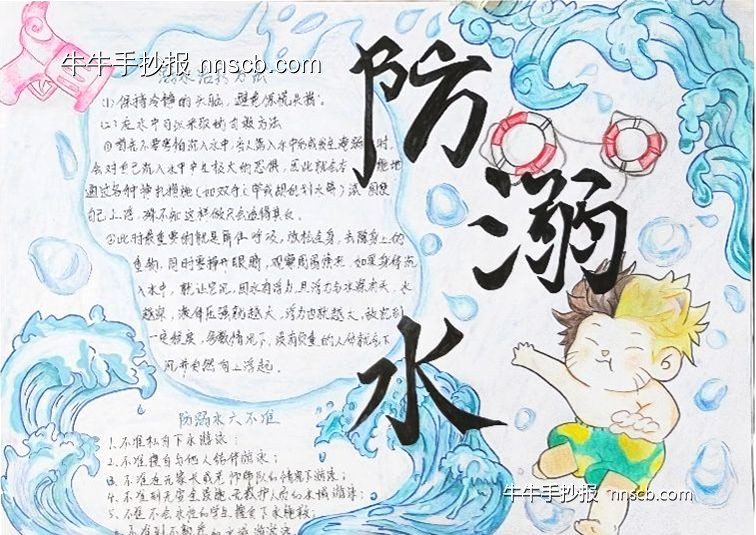 牛牛手抄报 nnscb.com
防溺水
(1)保持冷静的头脑,避免惊慌失措。
(2)在水中可以采取的自救方法
①首先不要害怕沉入水中,当人落入水中
会对自己沉入水中产生极大的恐惧,因此就会本
通过各种挣扎措施
自己上浮,殊不知这样做只会适得其反。
②此时最重要的就是屏住呼吸,放松全身,去除身上的
重物,同时要睁开眼睛,观察周围情况。如果身体沉
入水中,就让它沉,因水有浮力,且浮力与水深有关,水
越深,液体压强就越大,浮力也就越大,故沉到
一定程度,多数情况下,没有负重的人体就会下
沉并自然向上浮起。
防溺水六不准
1.不准私自下水游泳;
2.不准擅自与他人结伴游泳;
3.不准在无家长或老师带队的情况下游泳;
4.不准到无安全设施、无救护人员的水域游泳;
5.不准不会水性的学生擅自下水施救;
不准到不熟悉的水域游泳
牛牛手抄报 nnscb.com